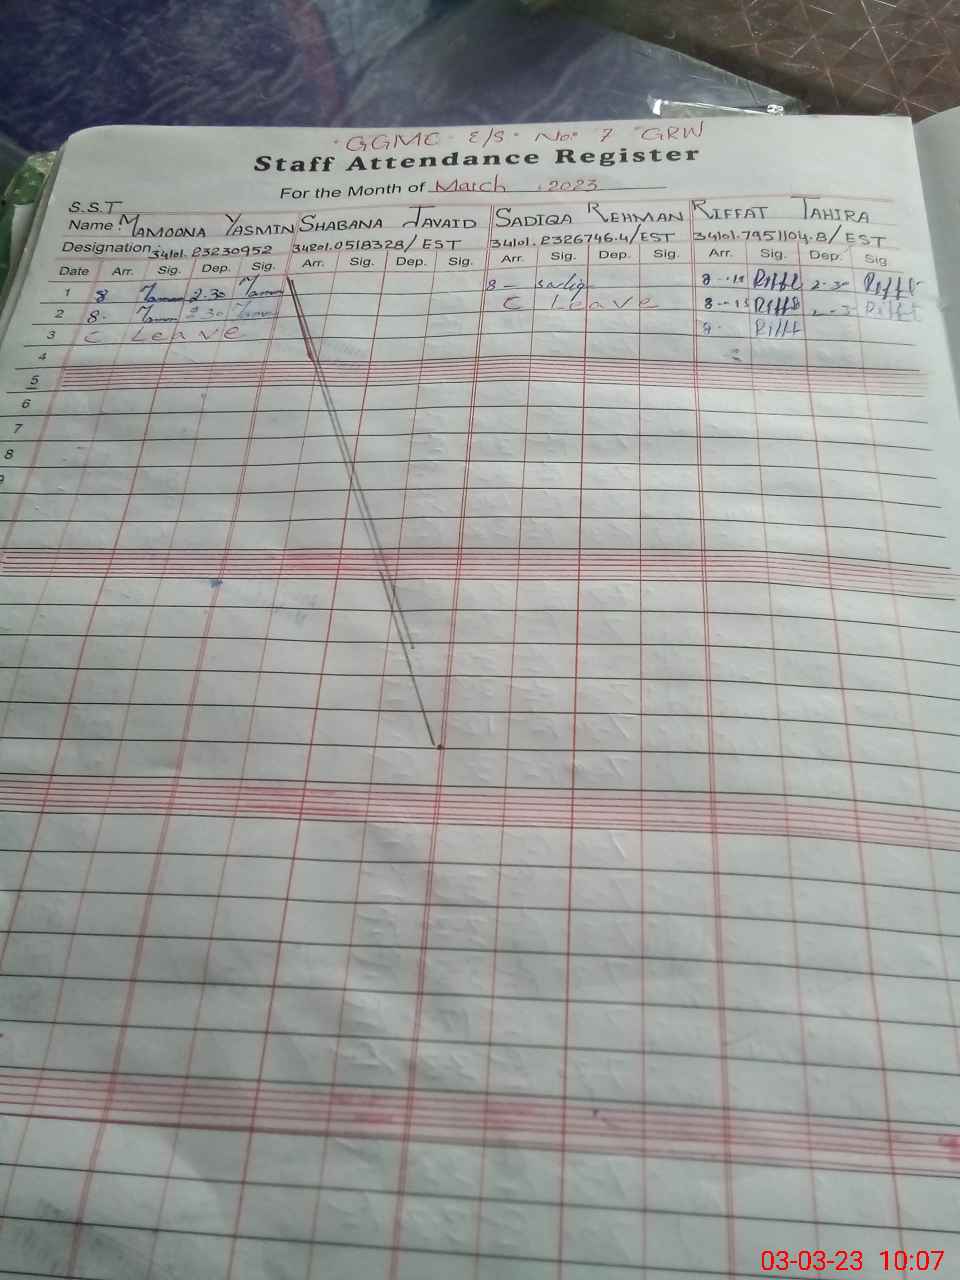 GGMC E/S No: 7 GRW
Staff Attendance Register
For the Month of March, 2023
S.S.T
Name: MAMOONA YASMIN SHABANA JAVAID SADIQA REHMAN RIFFAT TAHIRA
Designation: 34101.23230952 34201.0518328/EST 34101.2326746.4/EST 34101.7951104.8/EST
Date Arr. Sig. Dep. Sig. Arr. Sig. Dep. Sig. Arr. Sig. Dep. Sig. Arr. Sig. Dep. Sig.
1 8 2.30 8 - Sadiq 8 2-30
2 8. 2.30 C Leave 8
3 C Leave
4
5
6
7
8
9
03-03-23 10:07